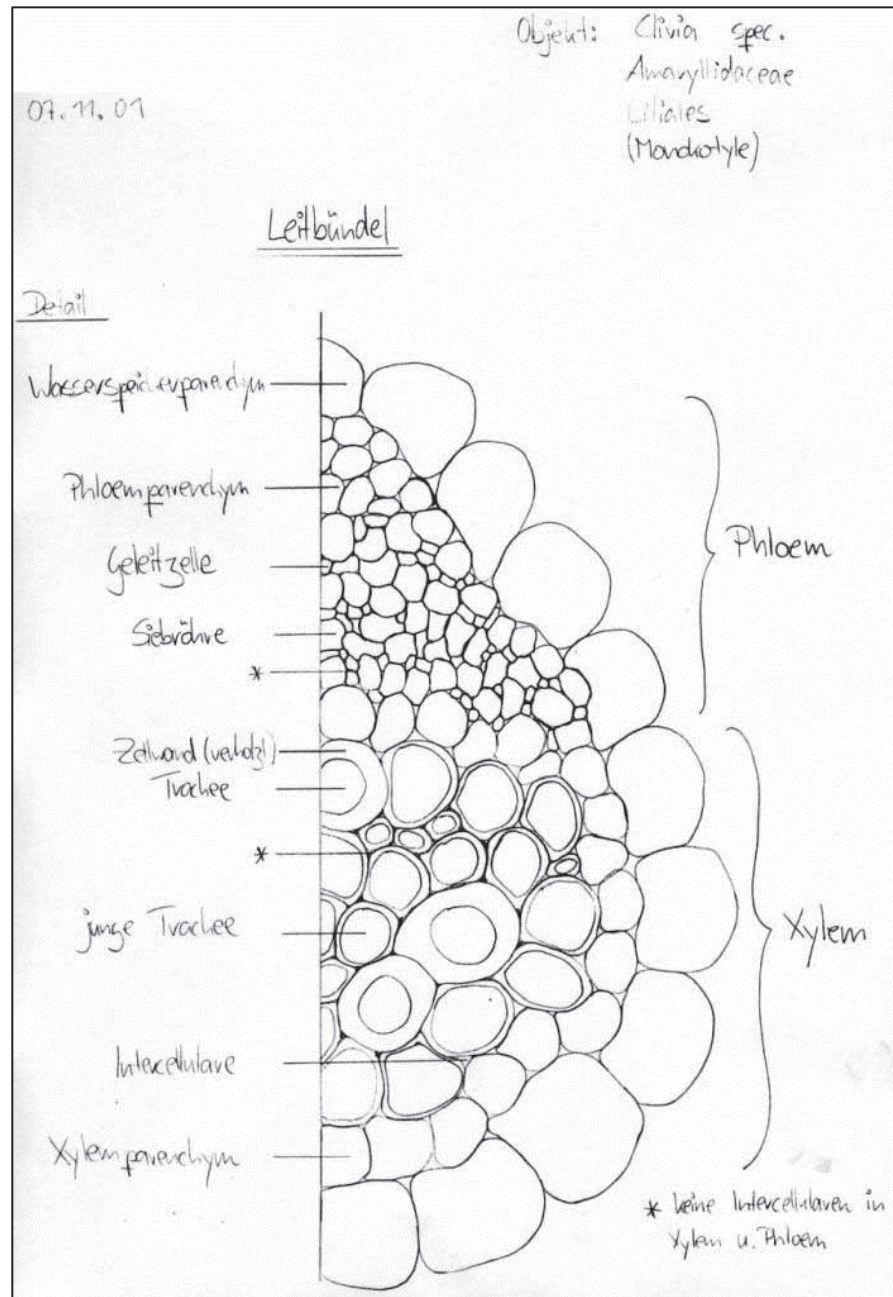 Objekt: Clivia spec.
Amaryllidaceae
Liliales
(Monokotyle)
07.11.01
Leitbündel
Detail
Wasserspeicherparenchym
Phloemparenchym
Geleitzelle
Siebröhre
*
Phloem
Zellwand (verholzt)
Trachee
*
junge Trachee
Xylem
Intercellulare
Xylemparenchym
* keine Intercellularen in
Xylem u. Phloem